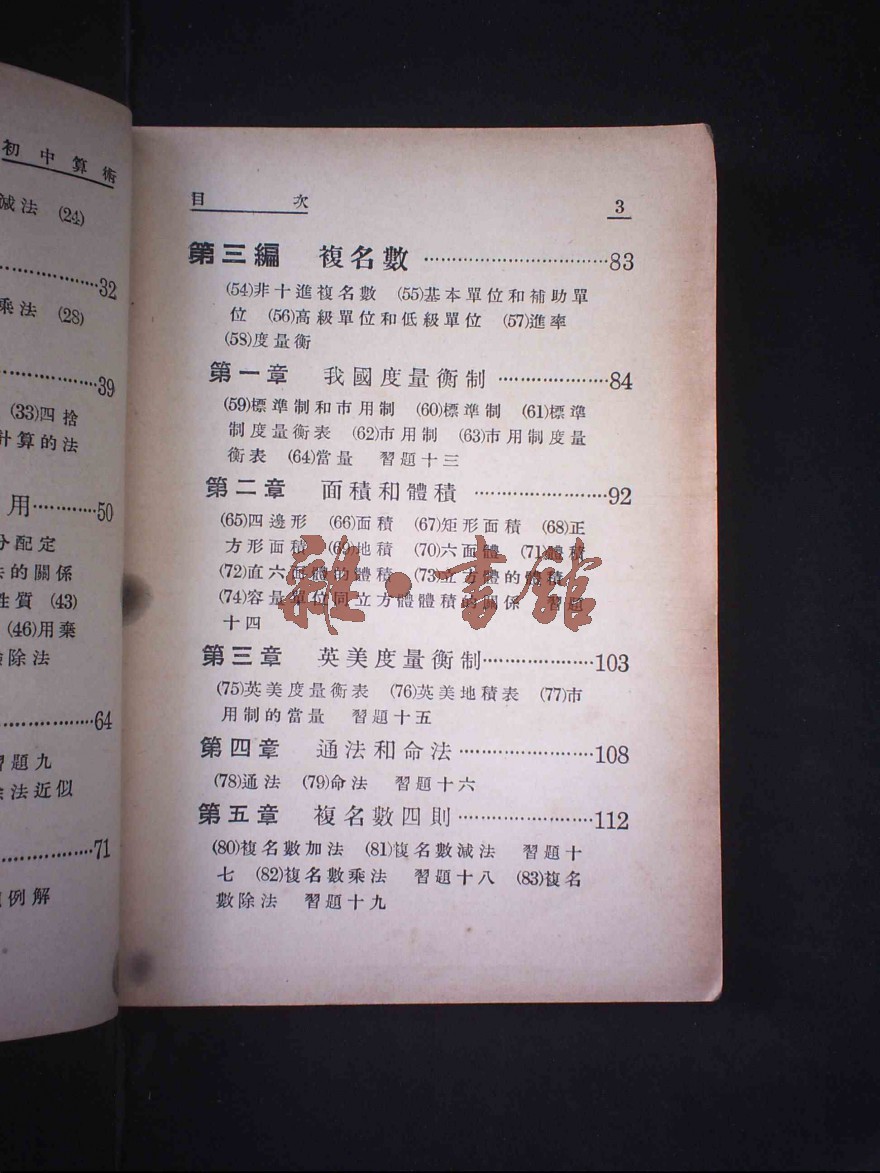 初中算術
減法 (24)
32
乘法 (28)
39
(33)四捨
計算的法
用 50
分配定
法的關係
性質 (43)
(46)用乘
除法
64
習題九
除法近似
71
例解
目 次 3
第三編 複名數 83
(54)非十進複名數 (55)基本單位和補助單
位 (56)高級單位和低級單位 (57)進率
(58)度量衡
第一章 我國度量衡制 84
(59)標準制和市用制 (60)標準制 (61)標準
制度量衡表 (62)市用制 (63)市用制度量
衡表 (64)當量 習題十三
第二章 面積和體積 92
(65)四邊形 (66)面積 (67)矩形面積 (68)正
方形面積 (69)地積 (70)六面體 (71)體積
(72)直六面體的體積 (73)立方體的體積
(74)容量單位同立方體體積的關係 習題
十四
雜·書館
第三章 英美度量衡制 103
(75)英美度量衡表 (76)英美地積表 (77)市
用制的當量 習題十五
第四章 通法和命法 108
(78)通法 (79)命法 習題十六
第五章 複名數四則 112
(80)複名數加法 (81)複名數減法 習題十
七 (82)複名數乘法 習題十八 (83)複名
數除法 習題十九